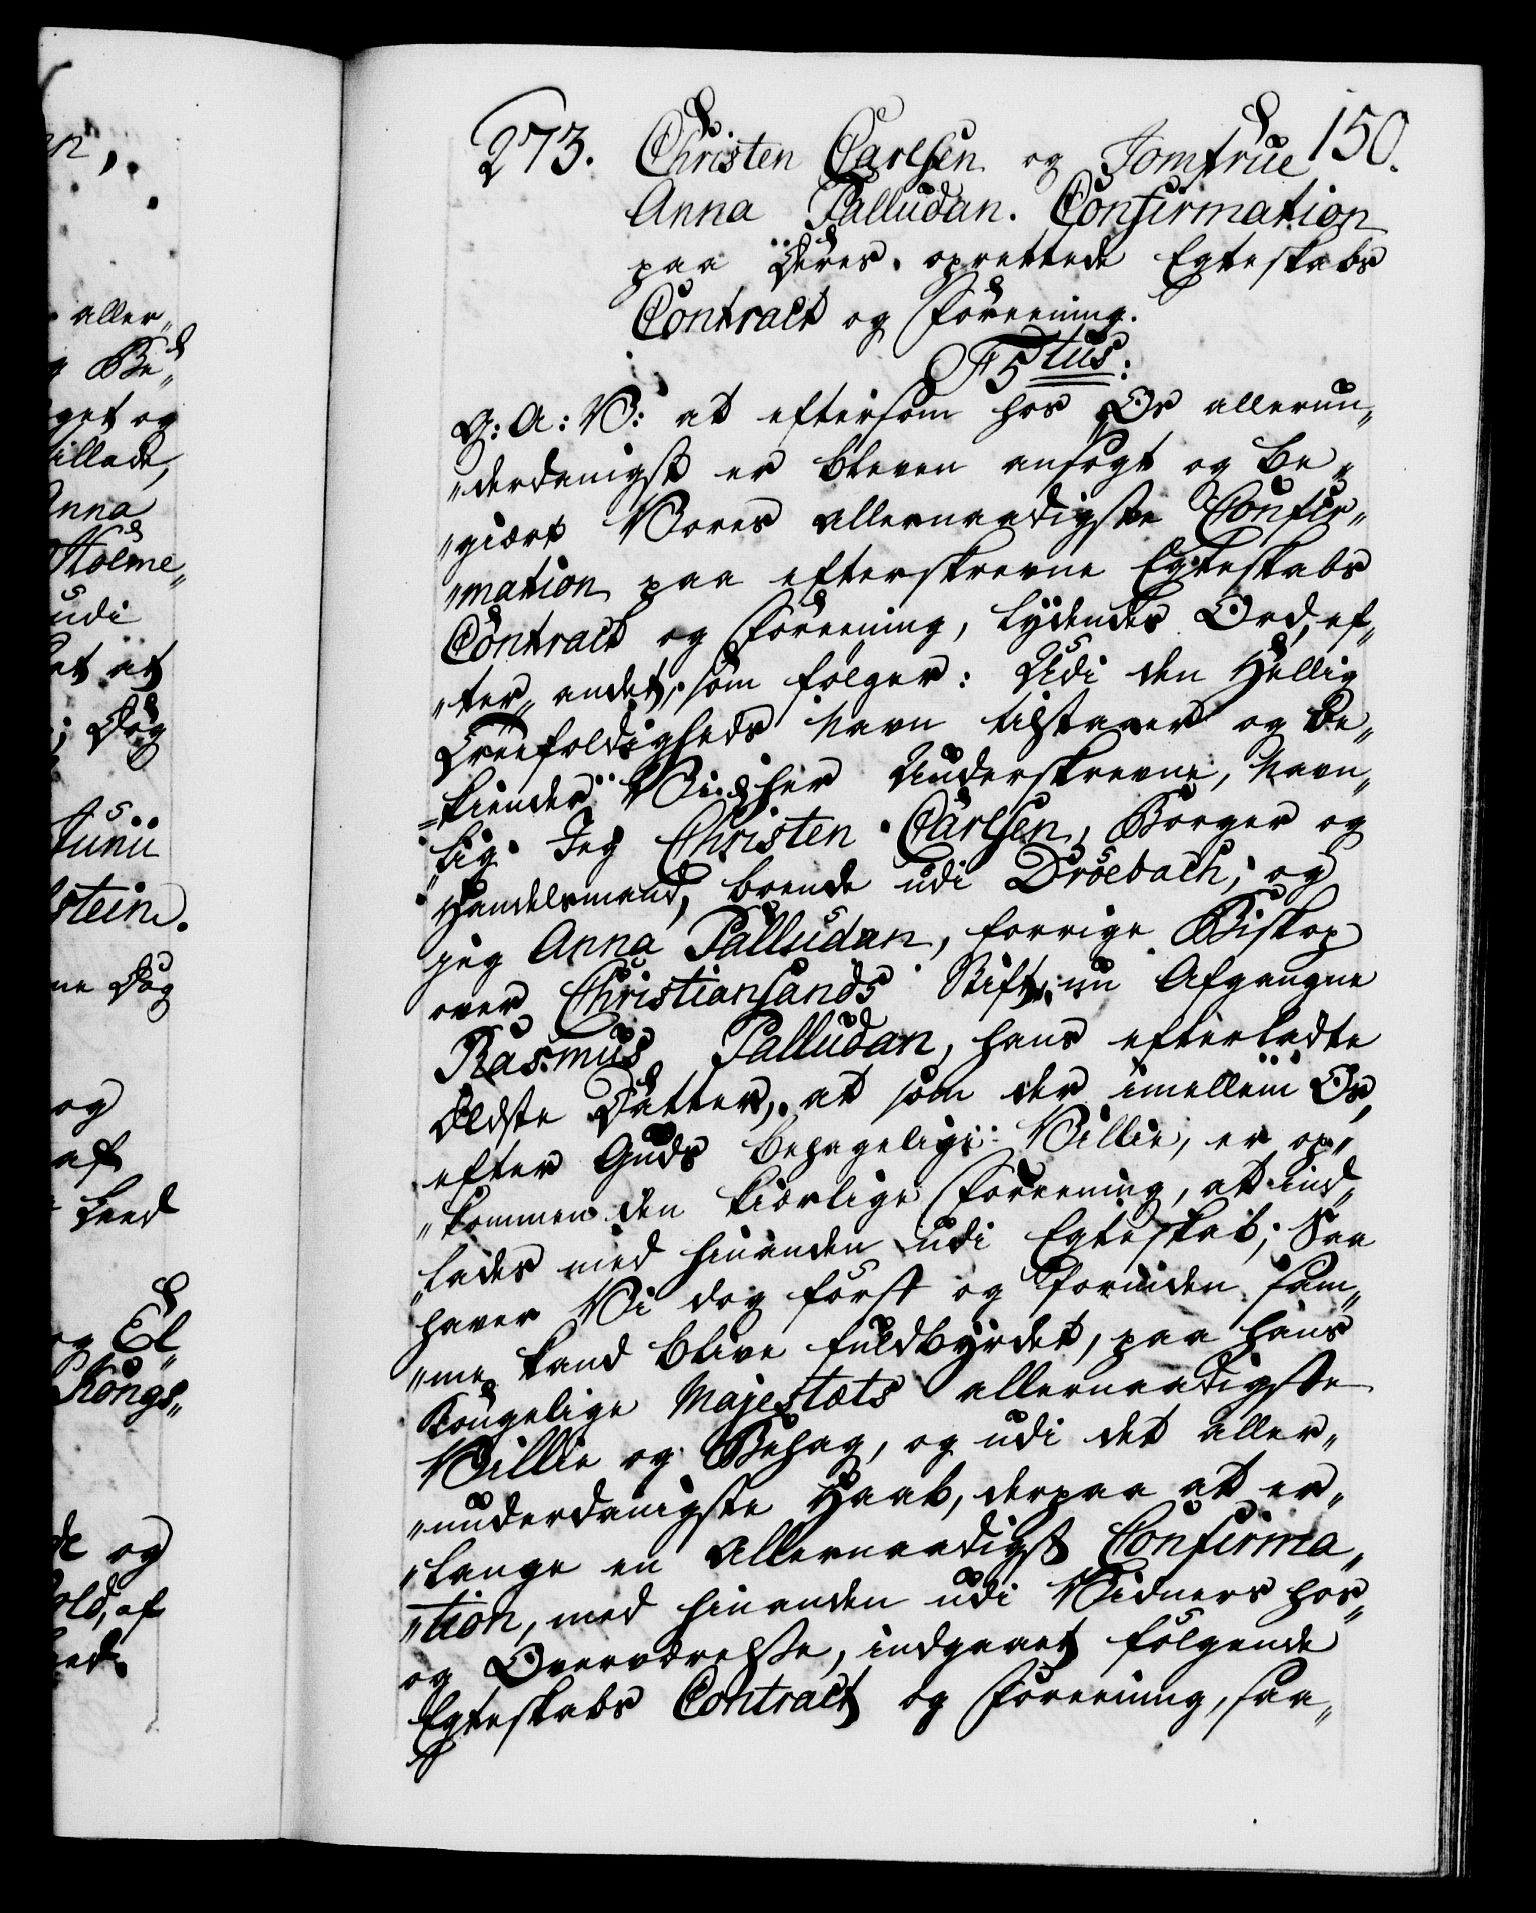 273. Christen Carlsen og Jomfrue 150.
Anna Palludan. Confirmation
paa Deres oprettede Egteskabs
Contract og Foreening.
F5tus:
G: A: V: at eftersom hos Os allerun„
„derdanigst er bleven ansøgt og be„
„giært Vores allernaadigste Confir„
„mation paa efterskrevne Egteskabs
Contract og Foreening, lÿdendes Ord, ef„
„ter andet, som følger: Udi den Hellig
Treefoldigheds Navn tilstaaer og be„
„kiender Vi her Underskrevne, Navn„
„lig Jeg Christen Carlsen, Borger og
Handelsmand, boende udi Dröebach, og
jeg Anna Palludan, forrige Biskop
over Christiansands Stift, nu Afgangne
Rasmus Palludan, hans efterladte
Ældste Datter, at som der imellem Os,
efter Guds behagelige Villie, er op„
„kommen den kiærlige Foreening, at ind„
„lades med hinanden udi Egteskab; Saa
haver Vi dog først og forinden sam„
„me kand blive fuldbÿrdet, paa hans
Kongelige Majestæts allernaadigste
Villie og Behag, og udi det aller„
„underdanigste Haab, derpaa at er„
„lange en Allernaadigst Confirma„
„tion, med hinanden udi Vidners hos„
og Overværelse, indgaaet følgende
Egteskabs Contract og Foreening, saa„
aller„
og Be„
get og
tillade,
Anna
Holme„
udi
at
; Dog
Junii
stein.
ne Dag
og
af
Leed
og El„
Kongs„
de og
old, af